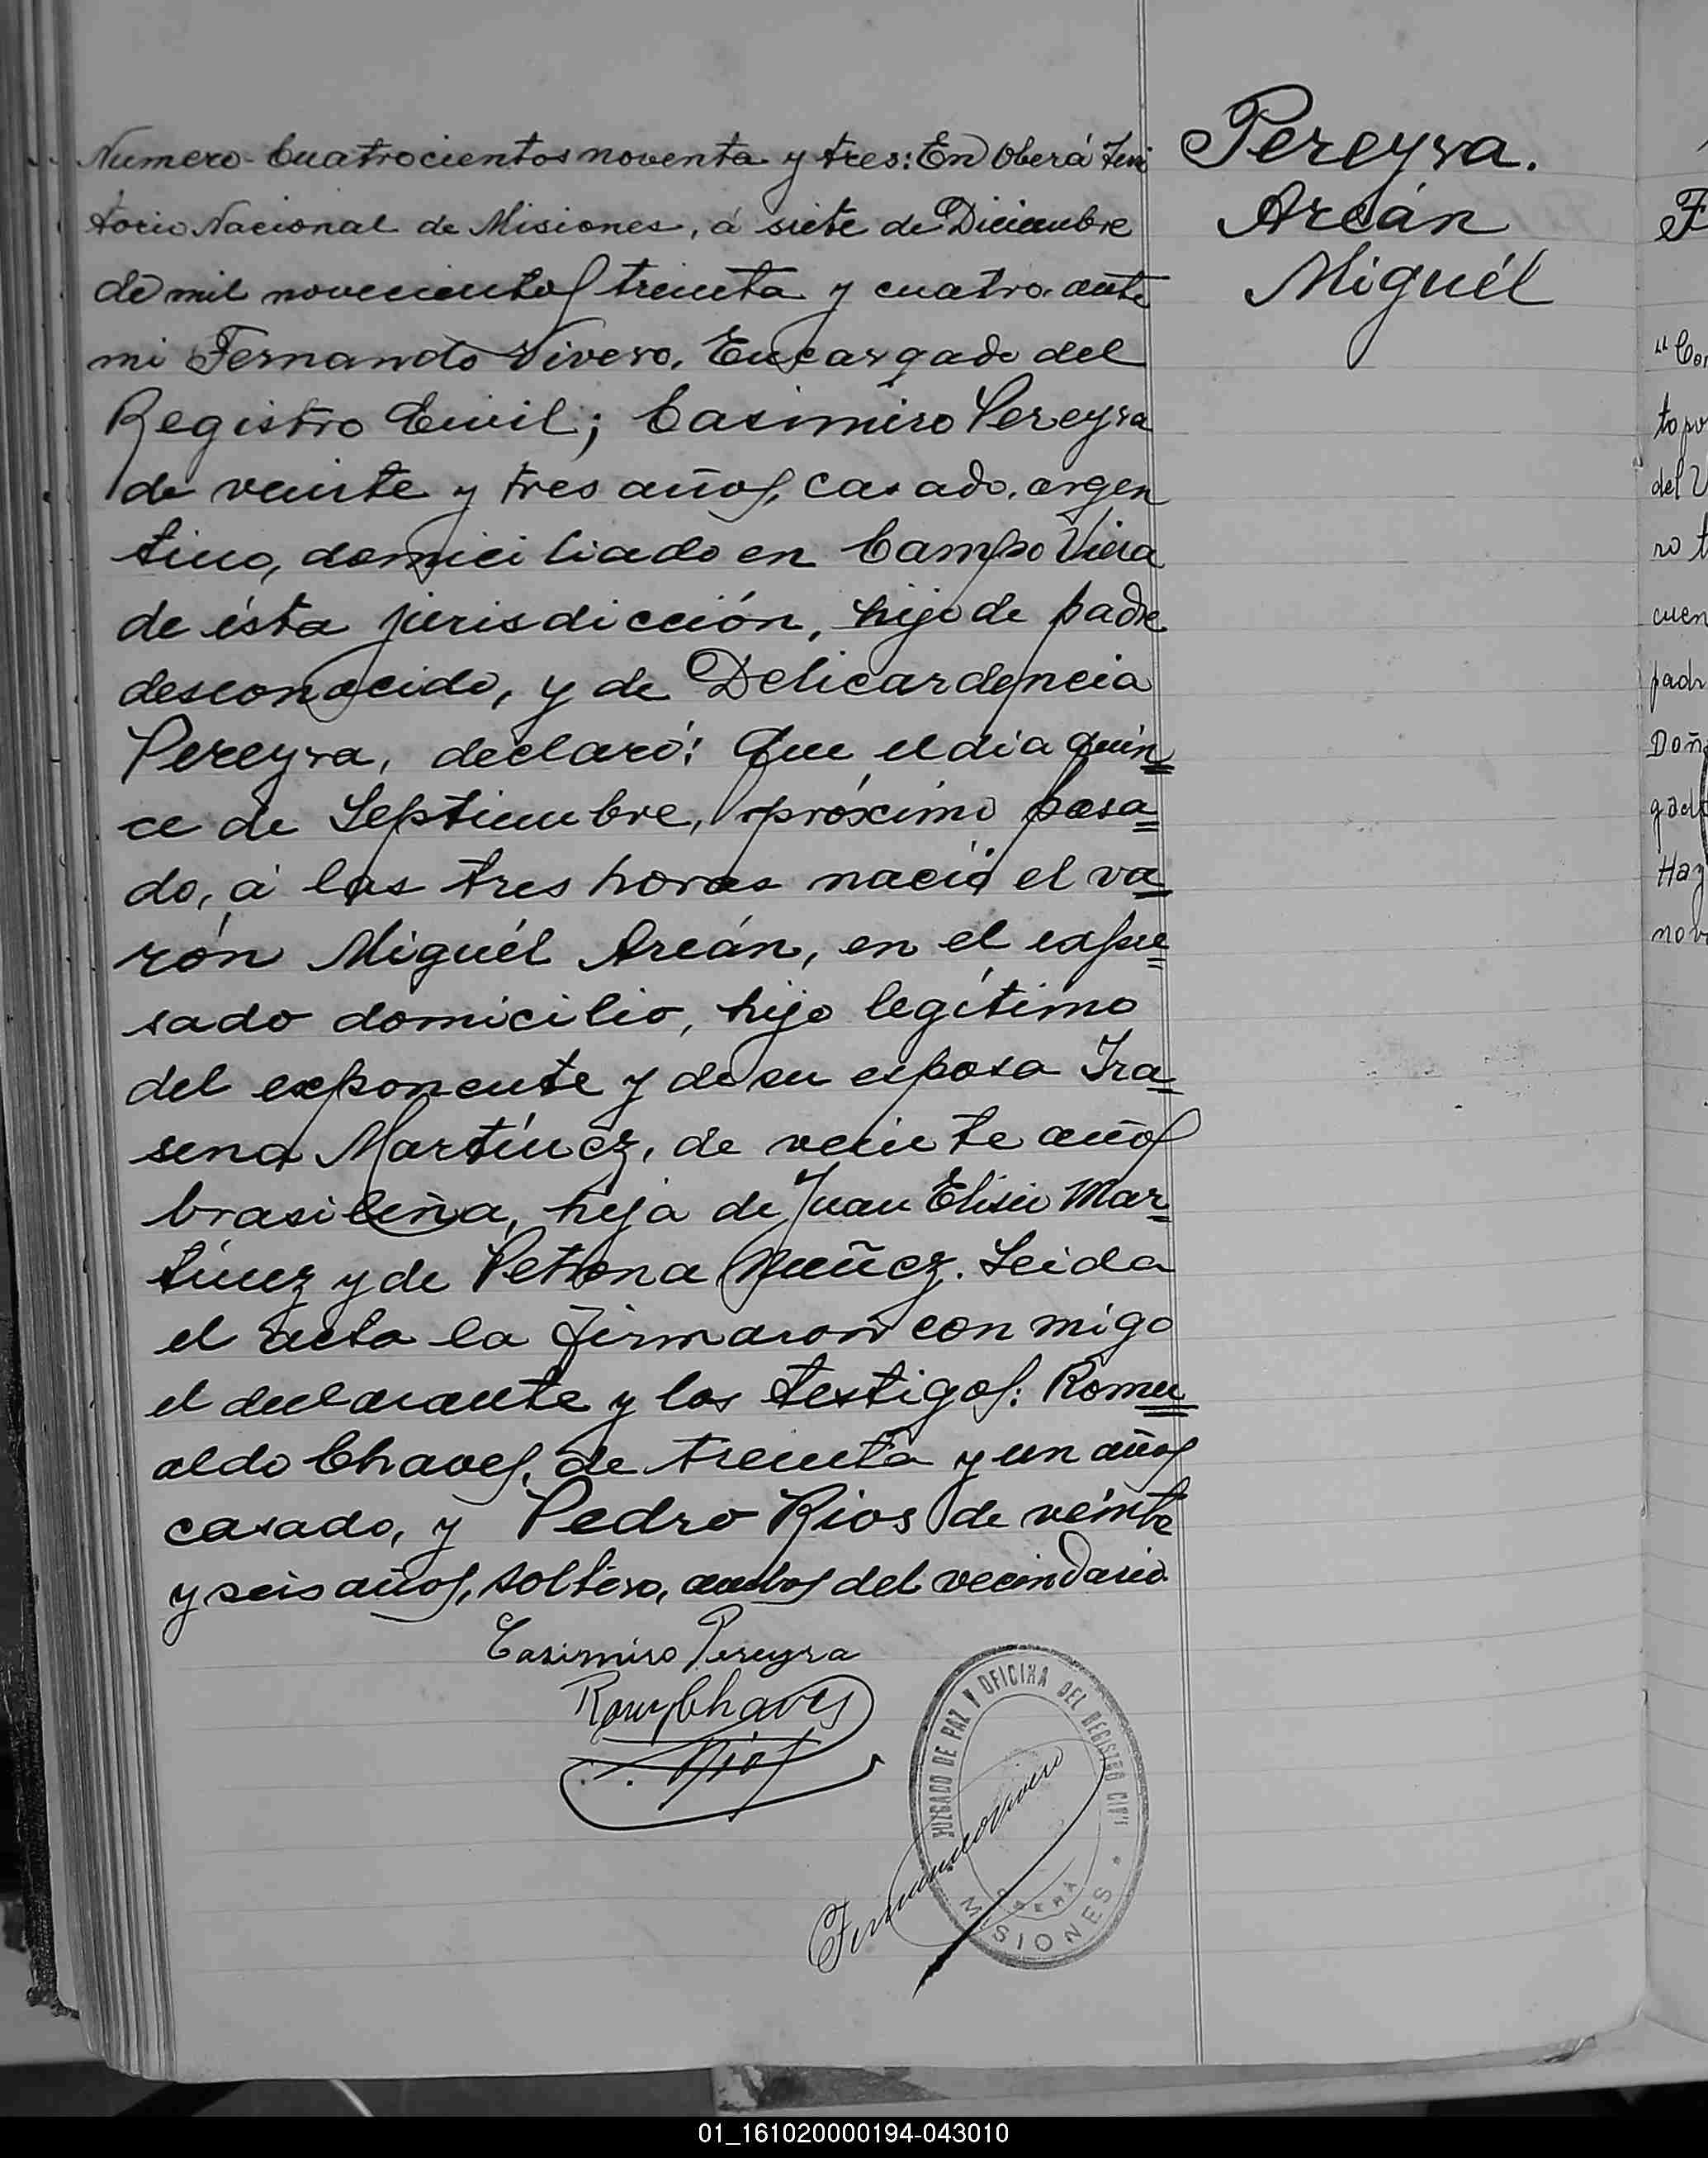 Numero Cuatrocientos noventa y tres: En Oberá Terri
torio Nacional de Misiones, á siete de Diciembre
de mil novecientos treinta y cuatro. ante
mi Fernando Vivero, Encargado del
Registro Civil; Casimiro Pereyra
de veinte y tres años, casado, argen
tino, domiciliado en Campo Viera
de ésta jurisdicción, hijo de padre
desconocido, y de Delicardencia
Pereyra, declaró: Que el día quin=
ce de Septiembre, próximo pasa=
do, á las tres horas nació el va=
rón Miguél Arcán, en el expre=
sado domicilio, hijo legítimo
del exponente y de su esposa Ira=
sena Martínez, de veinte años
brasileña, hija de Juan Eliseo Mar=
tínez y de Petrona Nuñez. Leida
el acta la firmaron con migo
el declarante y los testigos: Romu=
aldo Chaves, de treinta y un años
casado, y Pedro Rios de veinte
y seis años, soltero, ambos del vecindario.
Casimiro Pereyra
Rom Chaves
Rios
Fernando Vivero
JUZGADO DE PAZ Y OFICINA DEL REGISTRO CIVIL
OBERÁ
MISIONES
Pereyra.
Arcán
Miguél
F
"Co
topo
del U
ro t
cuen
padr
Doñ
gad
Haz
nov
01_161020000194-043010